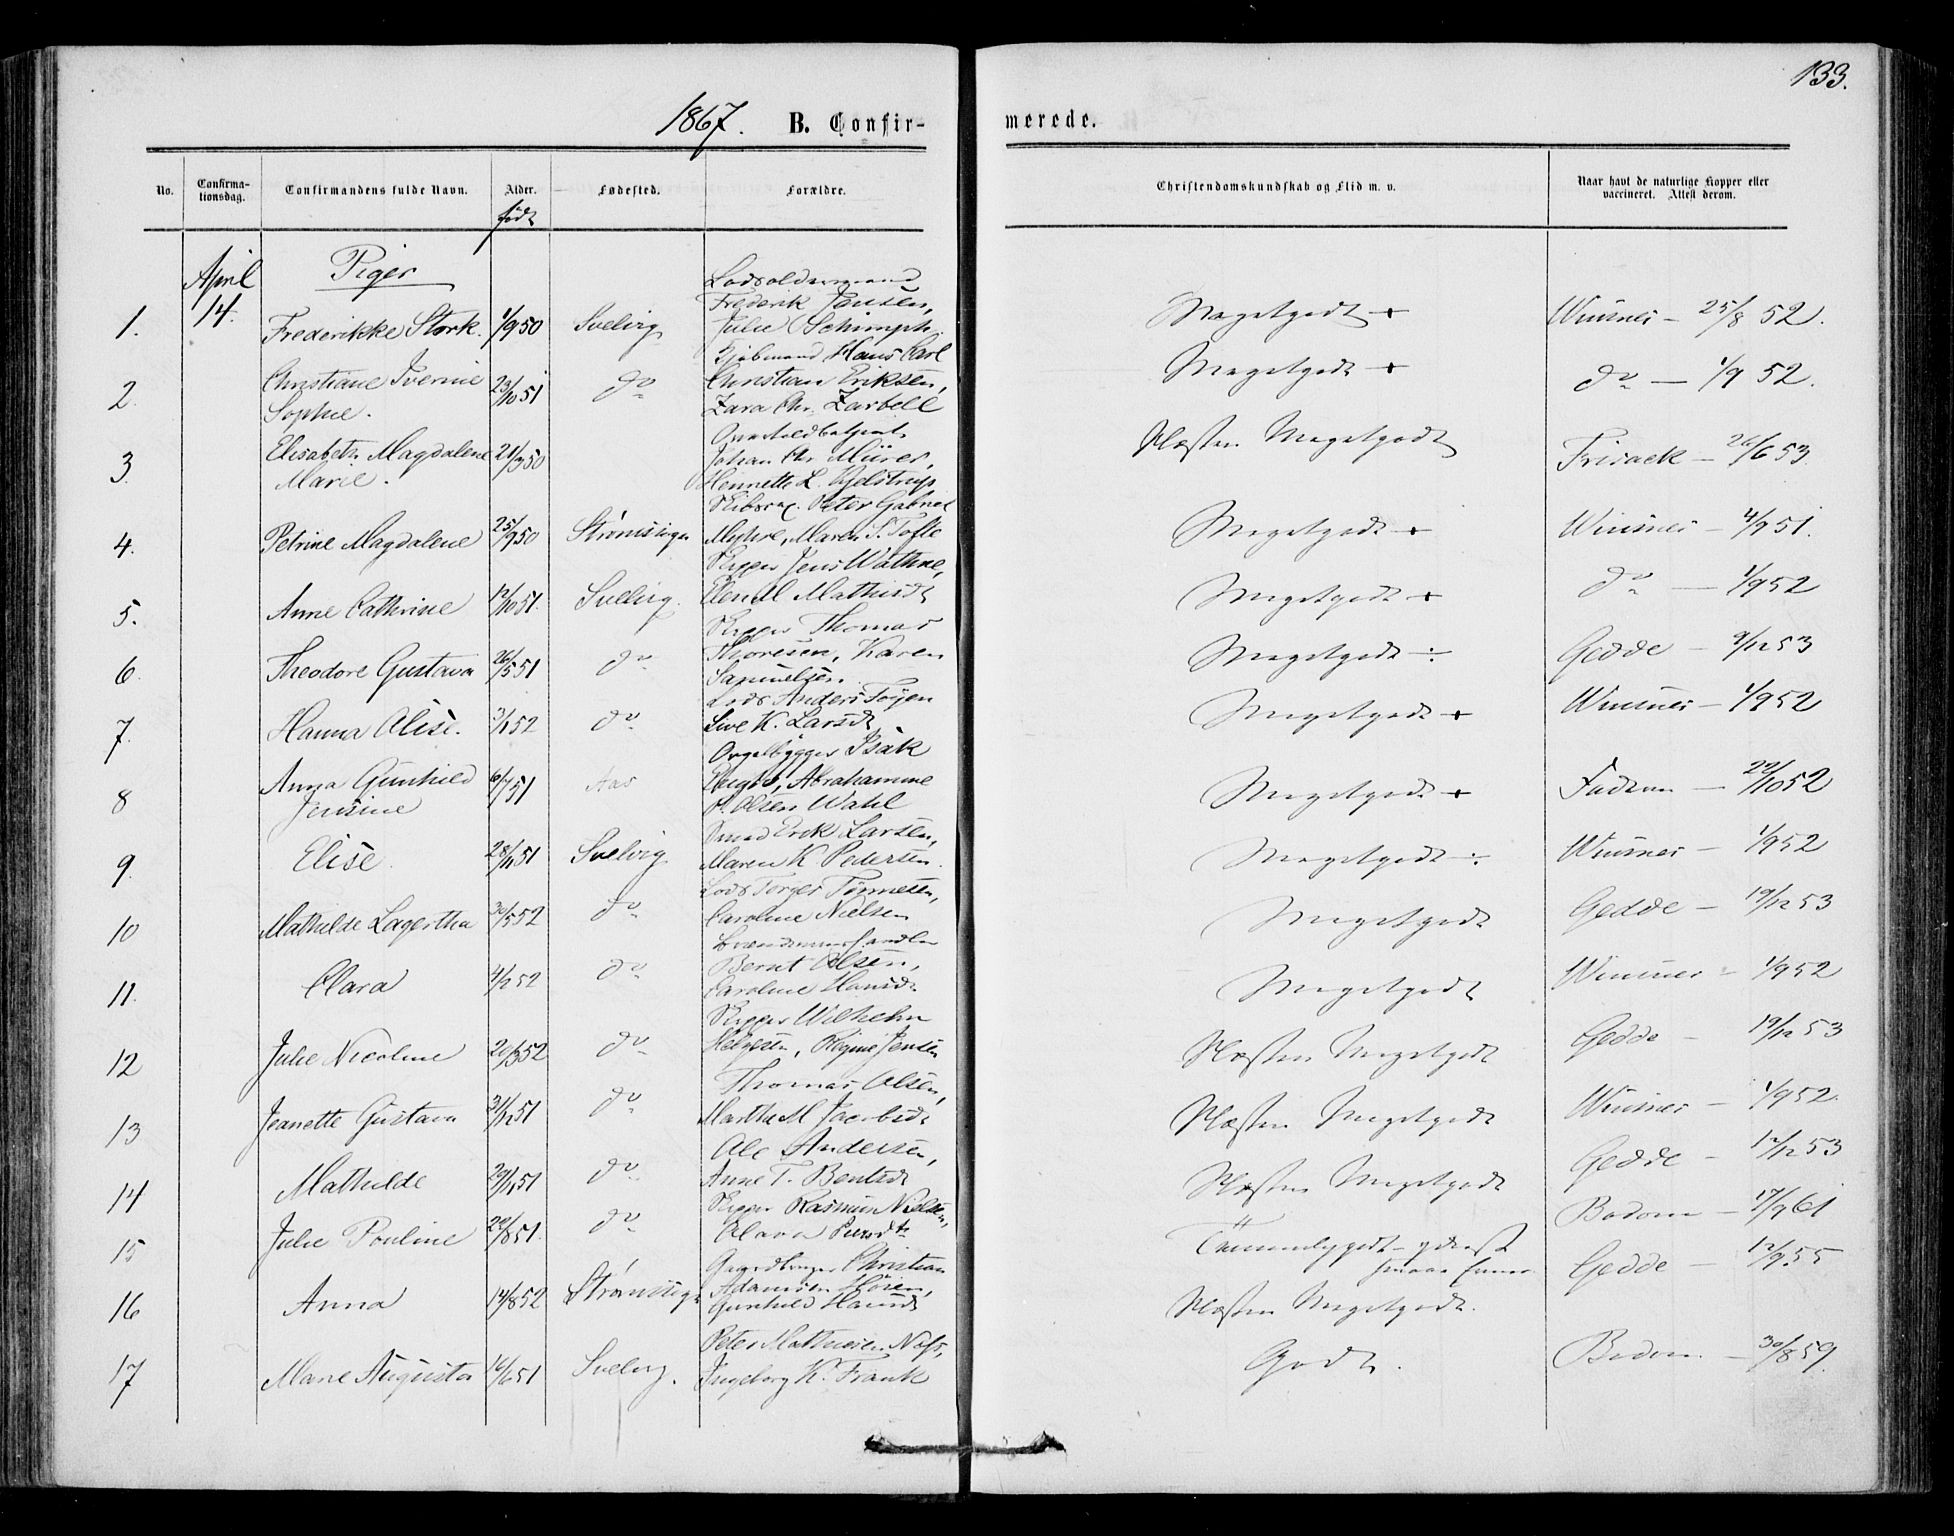 133.
1867. B. Confirmerede.
No. Confirmationsdag. Confirmandens fulde Navn. Alder. født Fødested. Forældre. Christendomskundskab og Flid m. v. Naar havt de naturlige Kopper eller vaccineret. Attest derom.
April 14. Piger
1. Frederikke Stork. 1/9 50 Svelvig Lodsoldermand Frederik Jensen, Julie Schimph. Megetgodt + Winsnes – 25/8 52.
2. Christiane Iverine Sophie. 23/10 51 do Kjøbmand Hans Carl Christian Eriksen, Zara Chr. Zarbell Megetgodt + do – 1/9 52.
3. Elisabeth Magdalene Marie. 21/3 50 Johan Chr Mürer, Hennette L. Kjelstrup Næsten Megetgodt Frisack – 26/6 53
4. Petrine Magdalene 25/9 50 Strømstigen Skibscap. Peter Gabriel Myhre, Maren S. Tofte Megetgodt + Winsnes – 4/9 51.
5. Anne Cathrine 12/10 51. Svelvig. Skipper Jens Wathne, Elen M Mathisdt Megetgodt + do – 1/9 52
6. Theodore Gustava 26/5 51 do Skipper Thomas Thoresen, Karen Samuelsen. Megetgodt ÷ Gedde – 9/12 53
7. Hanna Elise. 3/1 52 do Lods Anders Tøyen Live K. Larsdt Megetgodt + Winsnes – 1/9 52
8 Anna Gunhild Jensine 6/7 51 Aas Orgelbygger Isak Abrahamine P. Olsen Wahl Megetgodt + – 29/10 52
9. Elise. 28/11 51 Svelvig. Smed Erik Larsen, Maren K Pedersen. Megetgodt ÷ Winsnes – 1/9 52
10 Mathilde Lagertha 30/5 52 do Lods Torger Tønnesen, Caroline Nielsen Megetgodt Gedde – 19/12 53
11. Clara 4/2 52 do Brændevinshandler Bernt Olsen, Caroline Hansdt Megetgodt Winsnes – 1/9 52
12 Julie Nicoline 21/3 52 do Skipper Wilhelm Helgesen, Regine Jensen Næsten Megetgodt Gedde – 19/12 53
13 Jeanette Gustava 31/12 51 do Thomas Olsen, Marthe M Jacobsdt Næsten Megetgodt Winsnes – 1/9 52.
14 Mathilde 29/11 51 do Ole Andersen, Anne T. Bentsdt Næsten Megetgodt Gedde – 12/12 53
15 Julie Pouline 29/8 51. do Skipper Rasmus Nielsen, Olava Temmeliggodt – Bodom – 17/9 61
16 Anna 14/8 52 Strømstigen Gaardbruger Christian Adamsen Høien, Gunhild Hansdt Næsten Megetgodt. Gedde – 12/9 55
17 Marie Augusta 16/6 51 Svelvig. Peter Mathiesen Næss, Ingeborg K. Frank Godt. Bodom – 30/8 59.